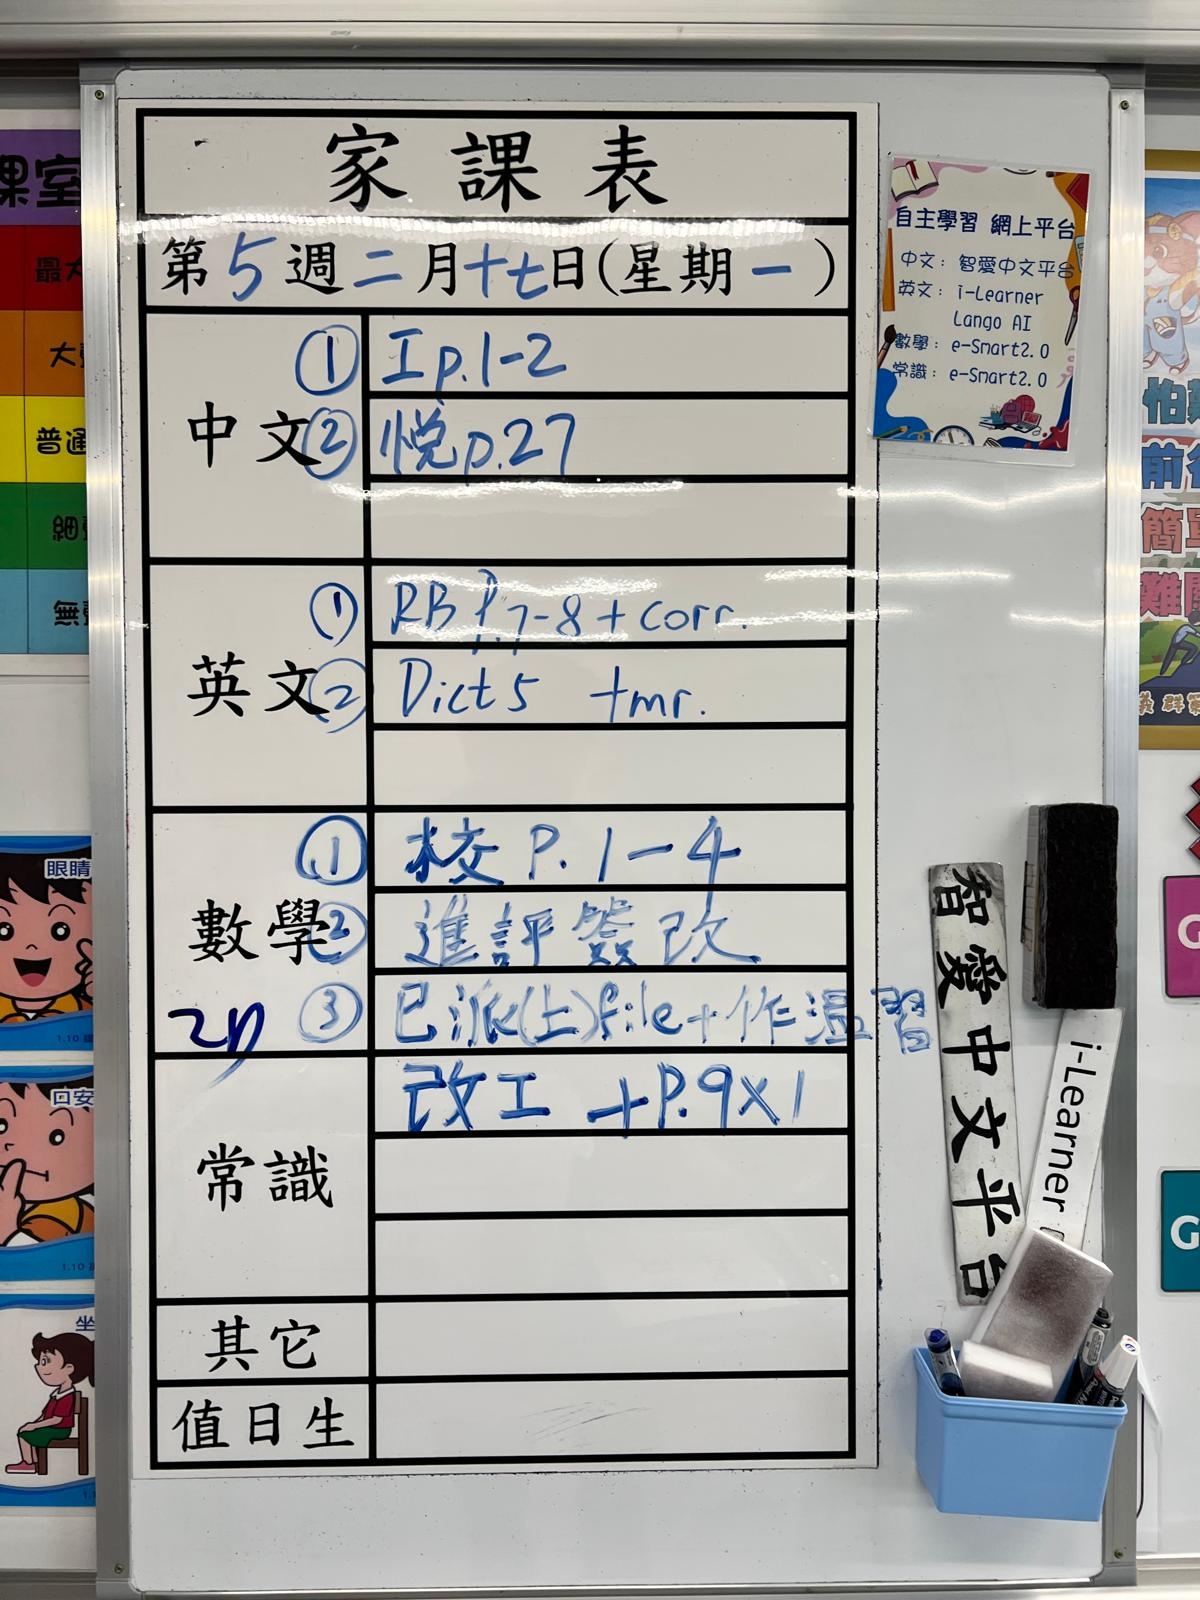 家課表
第5週二月十七日(星期一)
中文
① I p.1-2
② 悅p.27
英文
① RB P.7-8 + corr.
② Dict 5 tmr.
數學
① 校 P.1-4
② 進評簽改
③ 已派(上)file+作溫習
常識
改工 +P.9×1
其它
值日生
自主學習 網上平台
中文：智愛中文平台
英文：i-Learner
Lango AI
數學：e-Smart2.0
常識：e-Smart2.0
智愛中文平台
i-Learner
課室
最大
大
普通
細
無
眼睛
1.10
口安
1.10
坐
怕
前
簡單
難
群
G
G